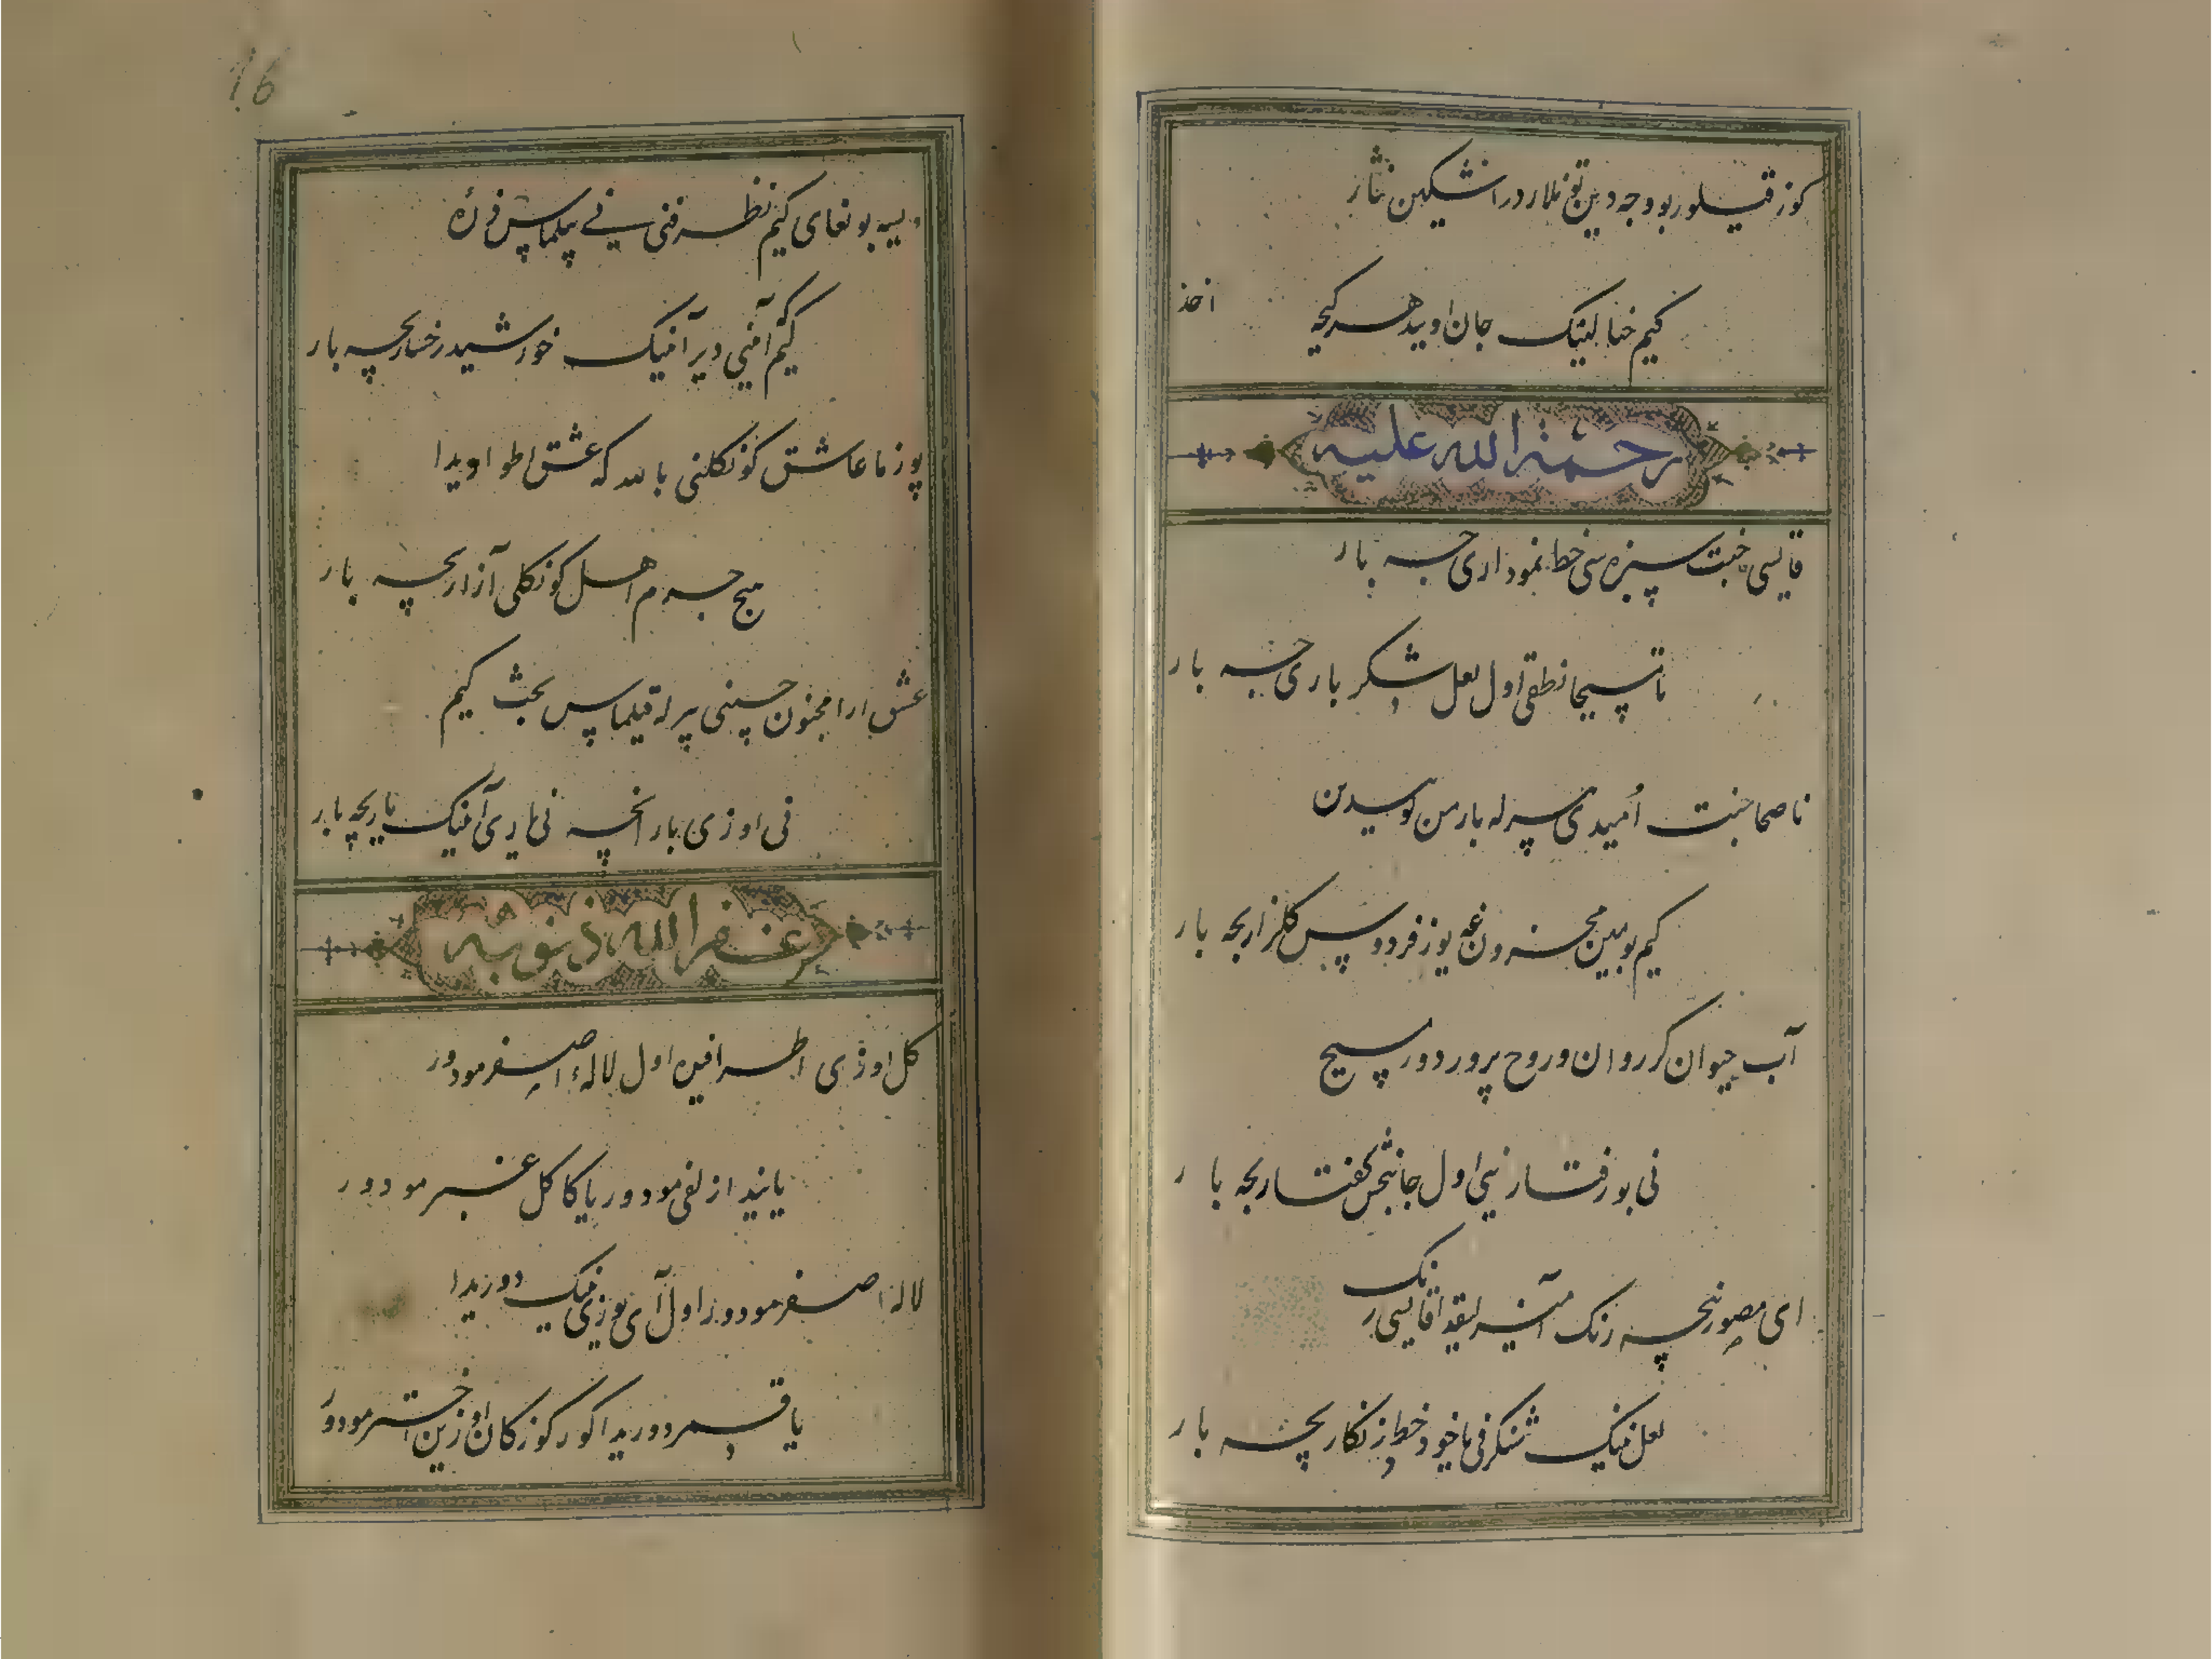 کوز قیلور بو وجه دین توزلار در اشکین نثار
کیم خیالینک جان اویید هر کیجه
اخذ
رحمة الله علیه
قایسی جنت سبزه سی خط نموداریچه بار
نا مسیحا نطقی اول لعل شکرباریچه بار
ناصحا جنت اُمیدی بیرله بارمن کویدین
کیم بو مین محزون غه یوز فردوس کلزاریچه بار
آب حیوان کر روان و روح پرور دور مسیح
نی بو رفتار نی اول جانبخش کفتاریچه بار
ای مصور نیچه رنک آمیزلیقدا قایسی رنک
لعل نینک شنکرفی یا خود خط زنکاریچه بار
کیم آنی دیر آنینک خورشید رخساریچه بار
یوز ما عاشق کونکلنی بالله که عشق اطواریدا
هیچ جرم اهل کونکلی آزاریچه بار
عشق ارا مجنون چسینی بیرله قیلماس بحث کیم
نی اوزی بارانچه نی یاری آنینک یاریچه بار
غفر الله ذنوبه
کل اوزی اطرافیده اول لالهٔ اصفر مودور
یا نیدا زلفی مودور یا کاکل عنبر مودور
لالهٔ اصفر مودور اول آی یوزی نینک دوریدا
یا قمر دوریدا کور کوزکان اوزین اختر مودور
16